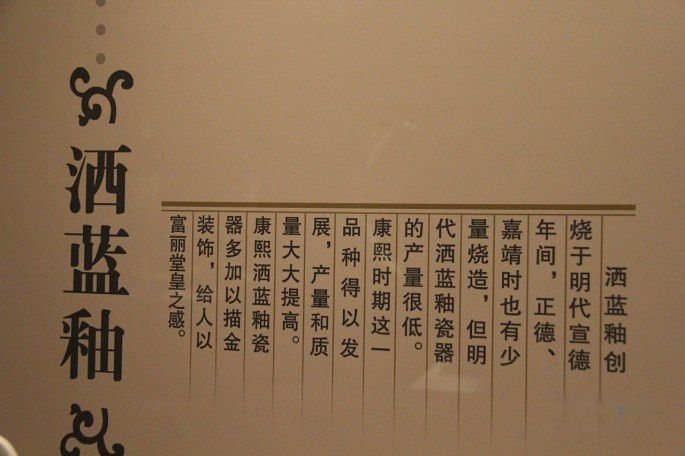 洒蓝釉
洒蓝釉创
烧于明代宣德
年间，正德、
嘉靖时也有少
量烧造，但明
代洒蓝釉瓷器
的产量很低。
康熙时期这一
品种得以发
展，产量和质
量大大提高。
康熙洒蓝釉瓷
器多加以描金
装饰，给人以
富丽堂皇之感。